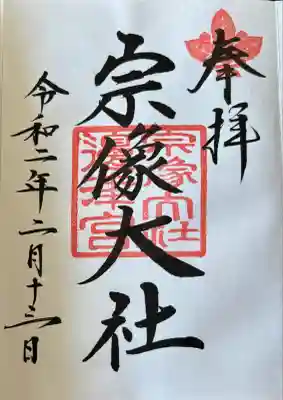 奉拝
宗像大社
令和二年二月十三日
宗像大社
邊津宮